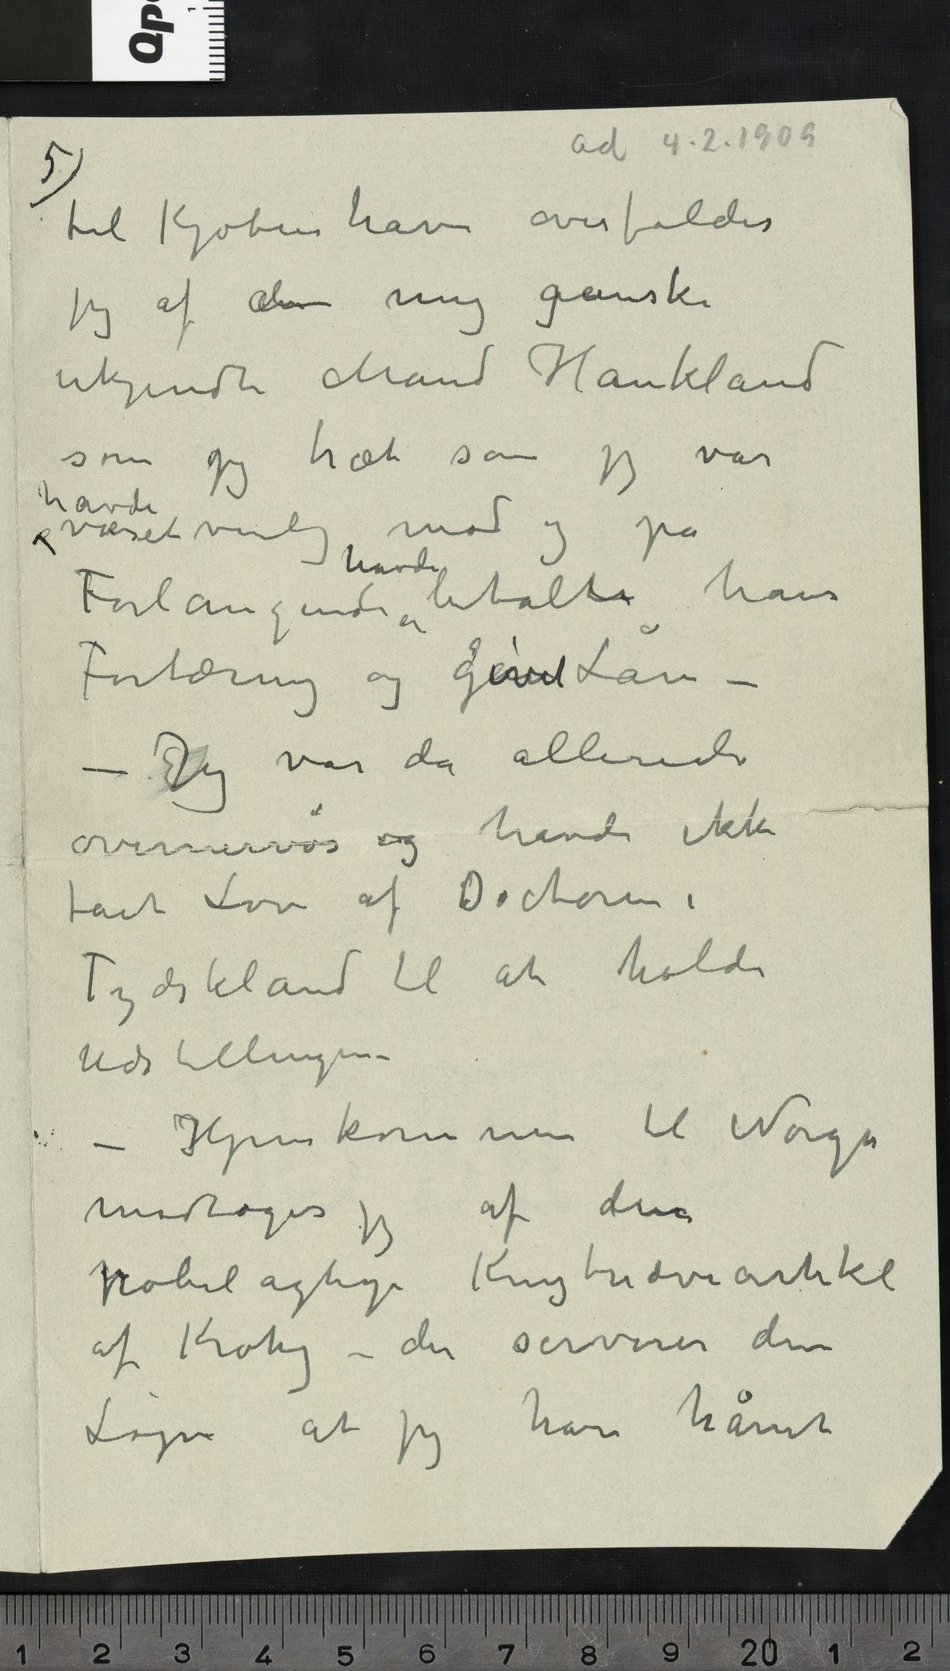 ad 4.2.1909
5)
til Kjøbenhavn overfaldes
jeg af den mig ganske
ukjendte Mand Haukland
som jeg træt som jeg var
havde
været venlig mod og på
havde
Forlangende betalte hans
Fortæring og givet Lån –
– Jeg var da allerede
overnervøs og havde ikke
faet Lov af Doctoren i
Tydskland til at holde
Udstillingen –
– Hjemkommen til Norge
modtoges jeg af den
pøbelagtige Krigtræveartikel
af Krohg – der serverer den
Løgn at jeg har hånet
1 2 3 4 5 6 7 8 9 20 1 2